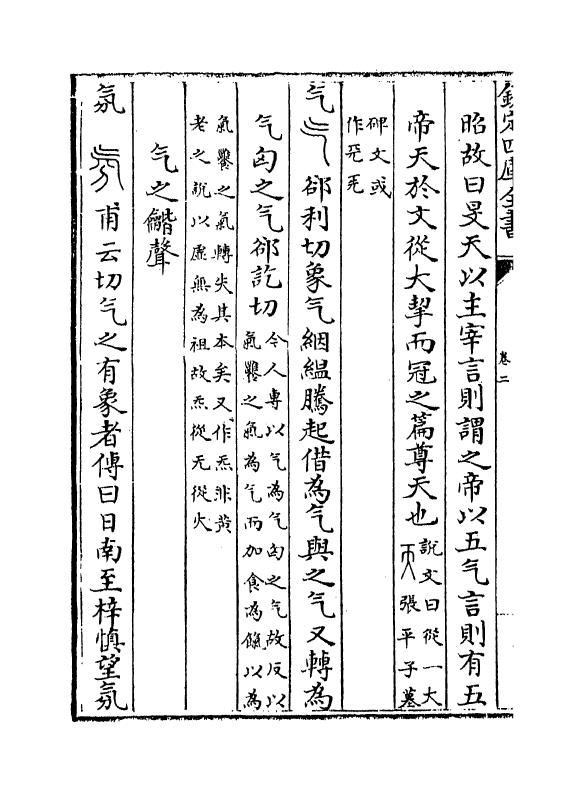 欽定四庫全書
卷二
昭故曰旻天以主宰言則謂之帝以五气言則有五
帝天於文從大挈而冠之篇尊天也
說文曰從一大
張平子墓
碑文或
作
气 郤利切象气絪縕騰起借為气與之气又轉為
气匄之气郤訖切
今人專以气為气匄之气故反以
氣饔之氣為气而加食為餼以為
氣饔之氣轉失其本矣又作炁非黄
老之說以虛無為祖故炁從无從火
气之龤聲
氛 甫云切气之有象者傳曰日南至梓慎望氛